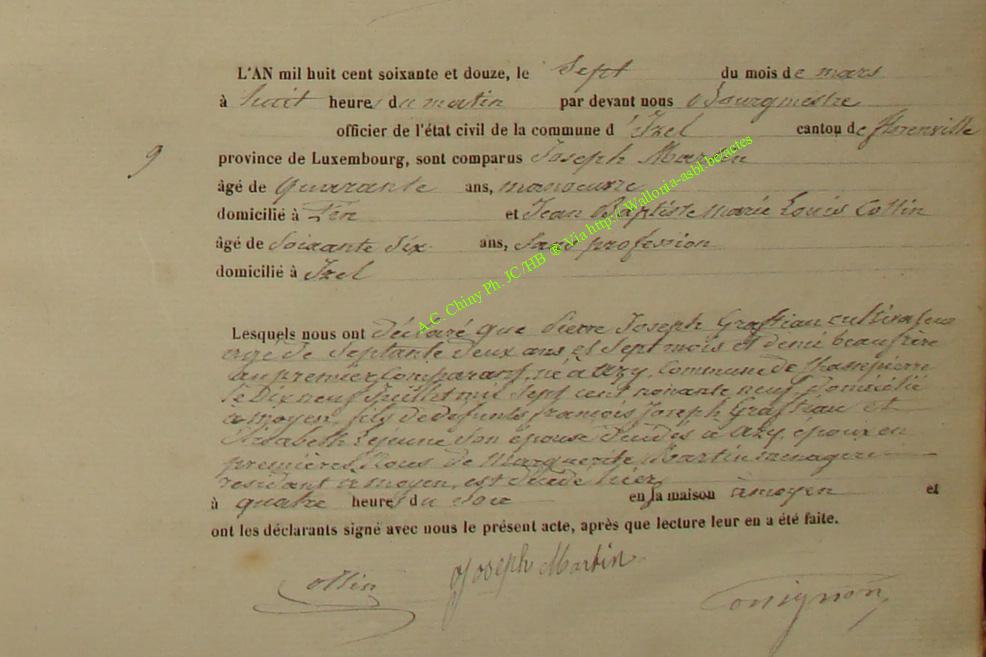 L'AN mil huit cent soixante et douze, le Sept du mois de mars
à huit heures du matin par devant nous Bourgmestre
officier de l'état civil de la commune d'Izel canton de florenville
9 province de Luxembourg, sont comparus Joseph Martin
âgé de quarante ans, manoeuvre
domicilié à et Jean Baptiste Marie Louis Collin
âgé de Soixante Six ans, Sans profession
domicilié à Izel
A.G. Chiny Ph. JC /HB ® Via http:\\Wallonia-asbl.be/actes
Lesquels nous ont déclaré que Pierre Joseph cultivateur
agé de Septante deux ans et Sept mois et demi beaufrère
au premier Comparant, né à Azy, Commune de
le Dix neuf Juillet mil Sept cent nonante neuf, Domicilié
à moyen, fils de defunts françois Joseph et
Elisabeth Lejeune Son épouse décédés à Azy, époux en
premières Noces de Marguerite Martin menagere
résidant à moyen, est décédé hier
à quatre heures du soir en sa maison à moyen et
ont les déclarants signé avec nous le présent acte, après que lecture leur en a été faite.
Collin Joseph Martin